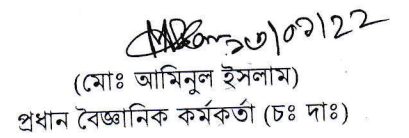 ২৩|০১|22
(মোঃ আমিনুল ইসলাম)
প্রধান বৈজ্ঞানিক কর্মকর্তা (চঃ দাঃ)